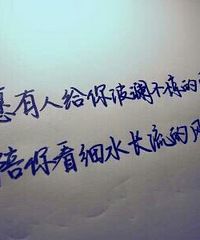 愿有人给你波澜不惊的
陪你看细水长流的风